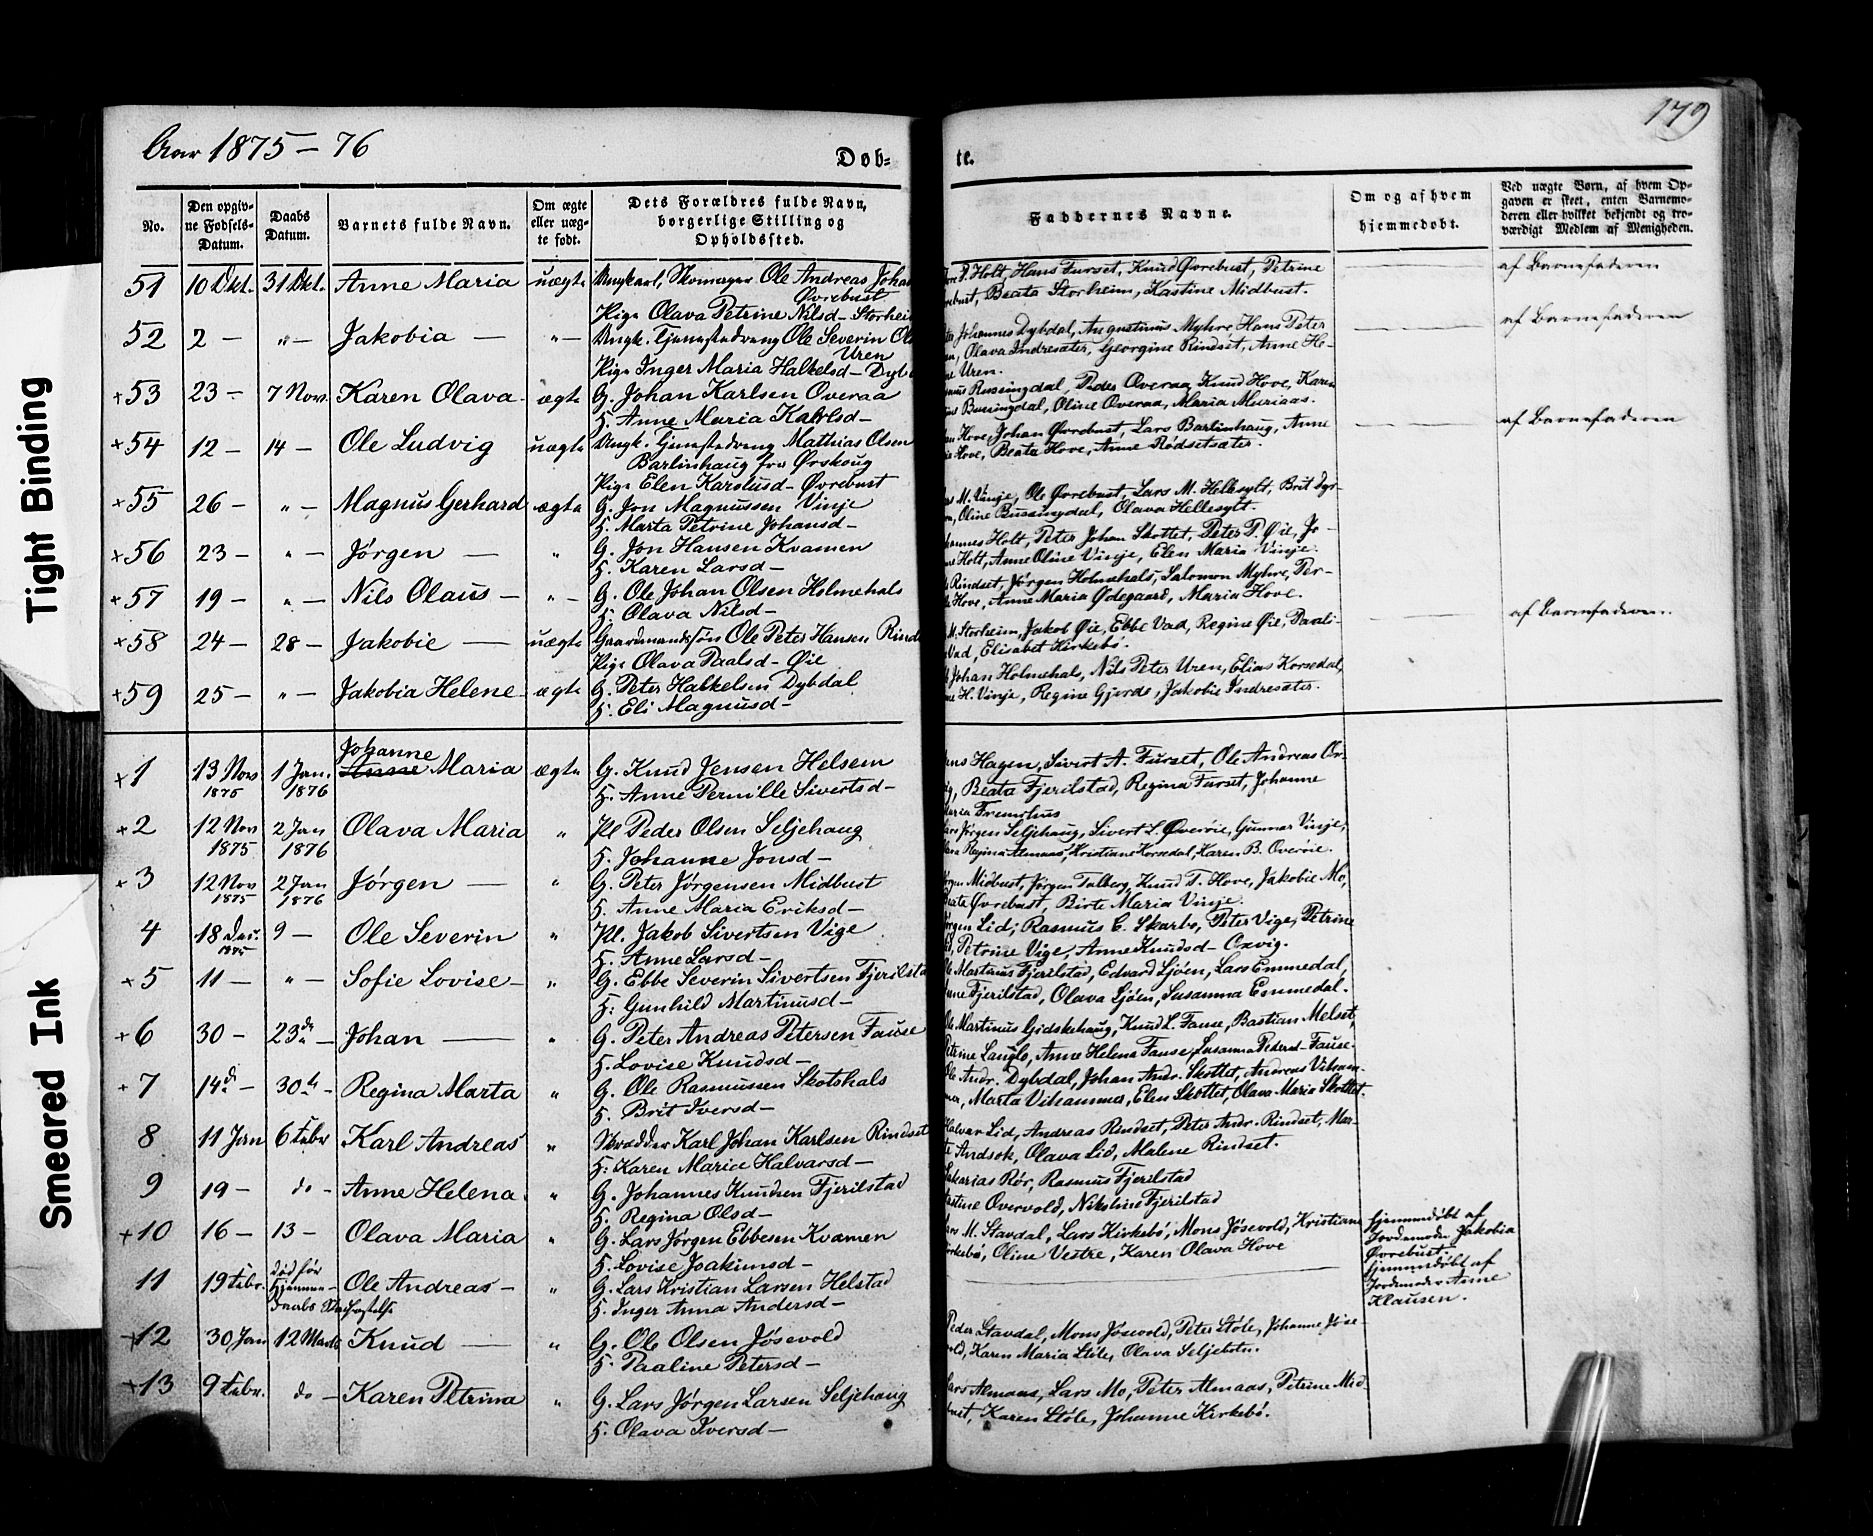 Tight Binding
Smeared Ink
Aar 1875 - 76
Døb-
te.
179
No.
Den opgiv-
ne Fødsels-
Datum.
Daabs
Datum.
Barnets fulde Navn.
Om ægte
eller uæg-
te født.
Dets Forældres fulde Navn,
borgerlige Stilling og
Opholdssted.
Faddernes Navne.
Om og af hvem
hjemmedøbt.
Ved uægte Børn, af hvem Op-
gaven er skeet, enten Barnemo-
deren eller hvilket bekjendt og tro-
værdigt Medlem af Menigheden.
51 10 Okt. 31 Okt. Anne Maria uægte Ungkarl, Skomager Ole Andreas Johan
Øvrebust
Pige Olava Petrine Nilsd - Storhei
P. Holt, Hans Furset, Knud Øvrebust, Petrine
Beata Storheim, Kastine Midbust.
af Barnefaderen
52 2 - " - Jakobia - " - Ungk. Tjenestedreng Ole Severin Ol
Uren
Pige Inger Maria Halkelsd - Dyb
Johannes Dybdal, Augustinus Myhre, Hans Peter
Olava Indresæter, Georgine Rindset, Anne He-
Uren.
af Barnefaderen
+53 23 - 7 Nov. Karen Olava - ægte G. Johan Karlsen Overaa
H. Anne Maria Karlsd -
Peder Overaa, Knud Hove, Karen
Bussingdal, Oline Overaa, Maria Muriaas.
+54 12 - 14 - Ole Ludvig uægte Ungk. Tjenestedreng Mathias Olsen
Barlinhaug fra Ørskoug
Pige Elen Karslusd - Øvrebust
Hove, Johan Øvrebust, Lars Barlinhaug, Anne
Hove, Beata Hove, Anne Rødsetsæter.
af Barnefaderen
+55 26 - " - Magnus Gerhard ægte G. Jon Magnussen Vinje
H. Marta Petrine Johansd -
M. Vinje, Ole Øvrebust, Lars M. Hellesylt, Brit Dyr-
Oline Bussingdal, Olava Hellesylt.
+56 23 - " - Jørgen - " G. Jon Hansen Kvamen
H. Karen Larsd -
Holt, Peter Johan Skottet, Peter P. Øie, Jo-
Holt, Anne Oline Vinje, Elen Maria Vinje.
+57 19 - " - Nils Olaus - " - G. Ole Johan Olsen Holmehals
H. Olava Nilsd -
Rindset, Jørgen Holmehals, Salomon Myhre, Per-
Hove, Anne Maria Ødegaard, Maria Hove.
+58 24 - 28 - Jakobie - uægte Gaardmandssøn Ole Peter Hansen Rinds
Pige Olava Paalsd - Øie
M. Storheim, Jakob Øie, Ebbe Vad, Regine Øie, Paali-
Vad, Elisabet Kirkebø.
af Barnefaderen.
+59 25 - " - Jakobia Helene - ægte G. Peter Halkelsen Dybdal
H. Eli Magnusd -
Johan Holmehals, Nils Peter Uren, Elias Korsedal,
H. Vinje, Regine Gjerde, Jakobie Indresæter.
+1 13 Nov 1875 1 Jan. 1876 Johanne
Anne Maria ægte G. Knud Jensen Helsem
H. Anne Pernille Sivertsd -
Hagen, Sivert A. Furset, Ole Andreas Ov-
Beata Fjerilstad, Regina Furset, Johanne
Maria Fremshus
+2 12 Nov 1875 2 Jan 1876 Olava Maria " Pl Peder Olsen Seljehaug
H. Johanne Jonsd -
Jørgen Seljehaug, Sivert L. Øverøie, Gunnar Vinje,
Regina Almaas, Kristiane Korsedal, Karen B. Overøie.
+3 12 Nov 1875 2 Jan 1876 Jørgen - " G. Peter Jørgensen Midbust
H. Anne Maria Eriksd -
Jørgen Midbust, Jørgen Talberg, Knud T. Hove, Jakobie Mo,
Beate Øvrebust, Birte Maria Vinje.
4 18 Des. 1875 9 - Ole Severin " Pl. Jakob Sivertsen Vige
H. Anne Larsd -
Jørgen Lid, Rasmus E. Skarbø, Peter Vige, Petrine
Petrine Vige, Anne Knudsd - Oxvig.
+5 11 - " - Sofie Lovise - " G. Ebbe Severin Sivertsen Fjerilsta
H: Gunhild Martinusd -
Ole Martinus Fjerilstad, Edvard Ljøen, Lars Emmedal,
Anne Fjerilstad, Olava Ljøen, Susanna Emmedal.
+6 30 - 23de - Johan - " G. Peter Andreas Petersen Fause
H. Lovise Knudsd -
Ole Martinus Gidskehaug, Knud L. Fause, Bastian Melset,
Petrine Langlo, Anne Helena Fause, Susanna Pedersd - Fause.
+7 14de - 30te - Regina Marta " G. Ole Rasmussen Skotshals
H. Brit Iversd -
Ole Andr. Dybdal, Johan Andr. Skottet, Andreas Viham-
mer, Marta Vihammer, Elen Skottet, Olava Maria Skottet.
8 11 Jan 6 Febr Karl Andreas " Skrædder Karl Johan Karlsen Rindset
H: Karen Marice Halvarsd -
Halvar Lid, Andreas Rindset, Peter Andr. Rindset, Mar-
te Andsok, Olava Lid, Malene Rindset.
9 19 - do - Anne Helena " G. Johannes Knudsen Fjerilstad
H. Regina Olsd -
Sakarias Rør, Rasmus Fjerilstad
Kastine Overvold, Nikoline Fjerilstad
+10 16 - 13 - Olava Maria " G. Lars Jørgen Ebbesen Kvamen
H. Lovise Joakimsd -
Lars M. Stavdal, Lars Kirkebø, Mons Jøsevold, Kristiane
Kirkebø, Oline Vestre, Karen Olava Hove
hjemmedøbt af
Jordemoder Jakobia
Øvrebust.
11 19 Febr. død før
Hjemme-
daabs Stadfæstelse
Ole Andreas - " G. Lars Kristian Larsen Helstad
H. Inger Anna Andersd -
hjemmedøbt af
Jordemoder Anne
Klausen.
+12 30 Jan 12 Marts Knud - " G. Ole Olsen Jøsevold
H. Paaline Petersd -
Peder Stavdal, Mons Jøsevold, Peter Støle, Johanne Jøse-
vold, Karen Maria Støle, Olava Seljebotn.
+13 9 Febr. do - Karen Petrina " G. Lars Jørgen Larsen Seljehaug
H. Olava Iversd -
Lars Almaas, Lars Mo, Peter Almaas, Petrine Mid-
bust, Karen Støle, Johanne Kirkebø.